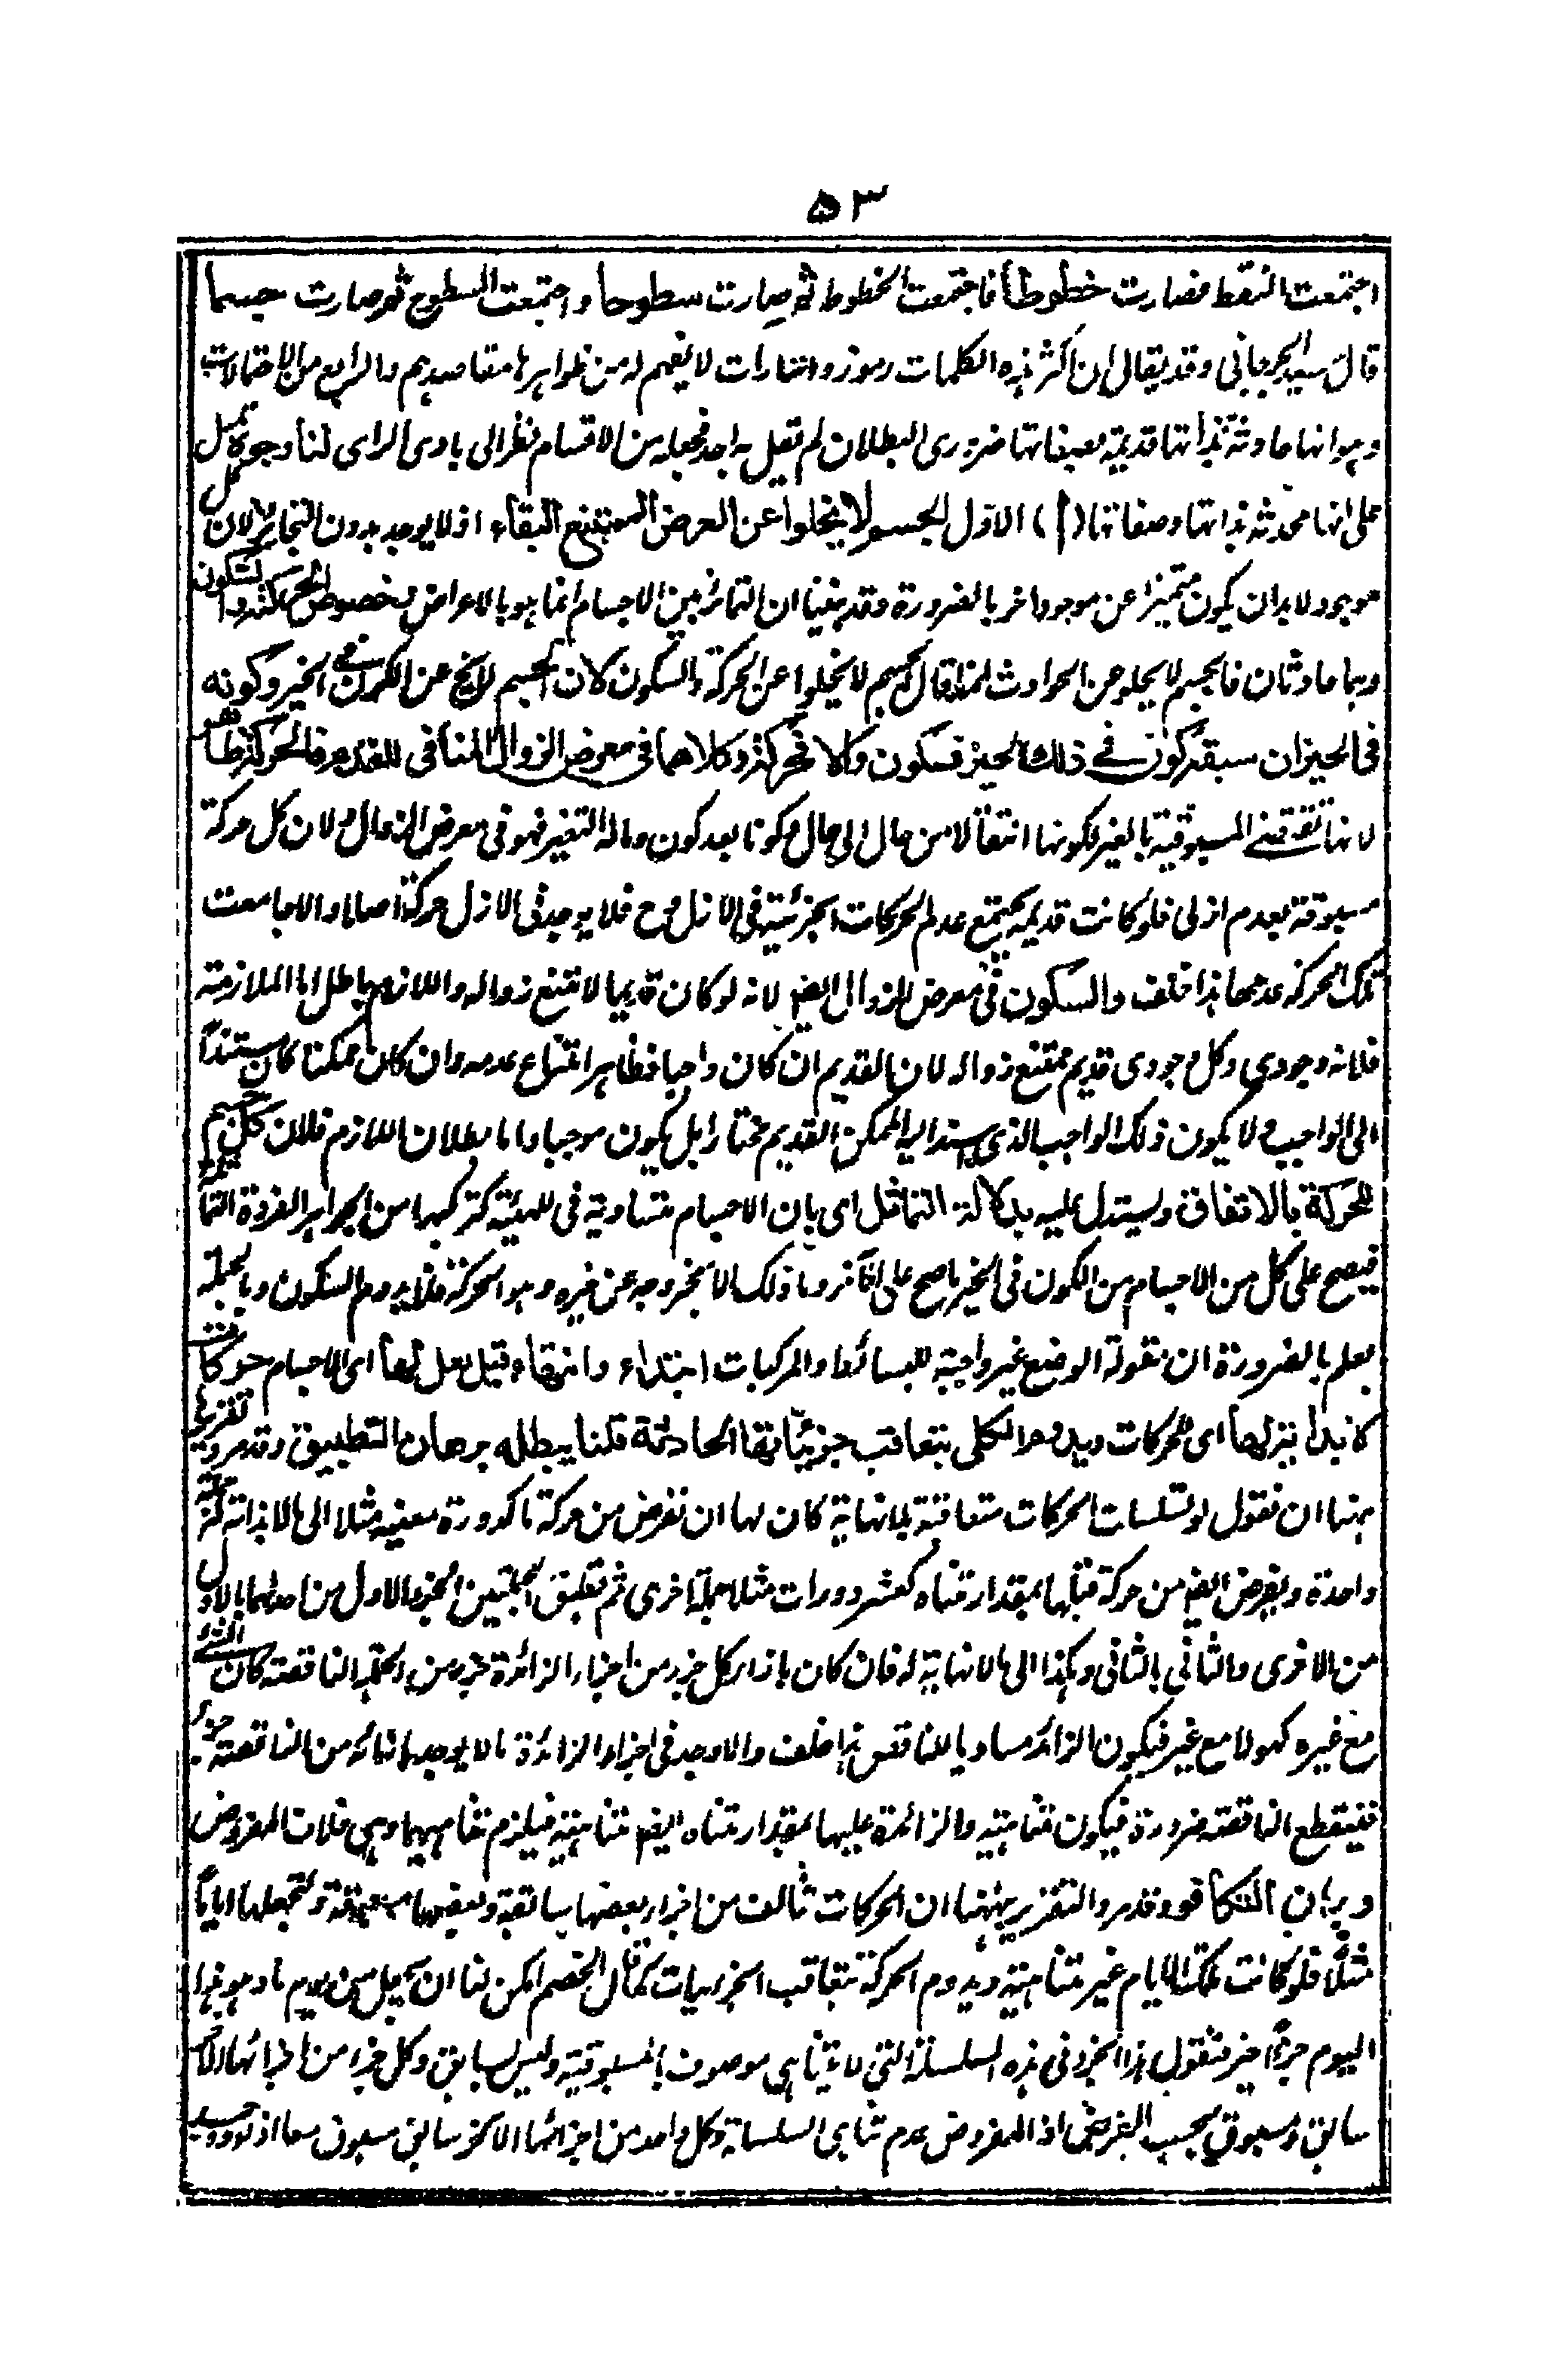 ۵۳
اجتمعت النقط فصارت خطوطا فاجتمعت الخطوط ثم صارت سطوحا واجتمعت السطوح ثم صارت جسما
قال سید الجرجانی وقد یقال ان اکثر هذه الکلمات رموز واشارات لا یفهم له من ظواهرها مقاصدهم والرابع من الاحتمالات
وهو انها حادثة بذاتها قدیمة بصفاتها ضروری البطلان لم یقل به احد فجعله من الاقسام نظرا الی بادی الرای لنا وجوه تدل
علی انها محدثة بذاتها وصفاتها (ا) الاول الجسم لا یخلوا عن العرض الممتنع البقاء اذ لا یوجد بدون التمایز لان کل
موجود لا بد ان یکون متمیزا عن موجود اخر بالضرورة وقد بینا ان التمائز بین الاجسام انما هو بالاعراض وخصوص الحرکة والسکون
وهما حادثان فالجسم لا یخلو عن الحوادث لهذا قال الجسم لا یخلوا عن الحرکة والسکون لان الجسم لا یخ عن الکون فی الحیز وکونه
فی الحیز ان سبقه کون فی ذلک الحیز فسکون والا فحرکة وکلاهما فی معرض الزوال المنافی للقدم فالحرکة ظاهر
لانها تقتضی المسبوقیة بالغیر لکونها انتقالا من حال الی حال وکونا بعد کون وماله التغیر فهو فی معرض الزوال ولان کل حرکة
مسبوقة بعدم ازلی فلو کانت قدیمة یجتمع عدم الحرکات الجزئیة فی الازل وح فلا یوجد فی الازل حرکة اصلا والا جامعت
تلک الحرکة عدمها هذا خلف والسکون فی معرض للزوال ایض لانه لو کان قدیما لامتنع زواله واللازم باطل اما الملازمة
فلانه وجودی وکل وجودی قدیم یمتنع زواله لان القدیم ان کان واجبا فظاهر امتناع عدمه وان کان ممکنا کان مستندا
الی الواجب ولا یکون ذلک الواجب الذی یستند الیه الممکن القدیم مختارا بل یکون موجبا واما بطلان اللازم فلان کل جسم
للحرکة بالاتفاق ویستدل علیه بدلالة التماثل ای بان الاجسام متساویة فی الماهیة لترکبها من الجواهر الفردة المتماثلة
فیصح علی کل من الاجسام من الکون فی الحیز ما صح علی الآخر وما ذلک الا بخروجه عن حیزه وهو الحرکة فلا یدوم السکون وبالجملة
یعلم بالضرورة ان مقولة الوضع غیر واجبة للبسائط والمرکبات ابتداء وانتهاء قیل لعل لها ای الاجسام حرکات
لا بدایة لها ای للحرکات ویدوم الکلی بتعاقب جزئیاتها الحادثة قلنا یبطله برهان التطبیق وقد مر وتقریره
ههنا ان نقول لو تسلسلت الحرکات متعاقبة بلا نهایة کان لها ان نفرض من حرکة ما کدورة معینة مثلا الی ما لا بدایة له جملة
واحدة ونفرض ایض من حرکة قبلها بمقدار متناه کعشر دورات مثلا جملة اخری ثم نطبق الجملتین الجزء الاول من احدهما بالاول
من الاخری والثانی بالثانی وهکذا الی ما لا نهایة له فان کان بازاء کل جزء من اجزاء الزائدة جزء من الجملة الناقصة کان الشئ
مع غیره کهو لا مع غیر فیکون الزائد مساویا للناقص هذا خلف والا وجد فی اجزاء الزائدة ما لا یوجد بازائه من الناقصة جزء
فینقطع الناقصة ضرورة فیکون متناهیة والزائدة علیها بمقدار متناه ایض متناهیة فیلزم تناهیهما وهی خلاف المفروض
وبرهان التکافؤ وقد مر والتقریر ههنا ان الحرکات تتالف من اجزاء بعضها سابقة وبعضها مسبوقة ولنجعلها ایاما
مثلا فلو کانت تلک الایام غیر متناهیة ویدوم الحرکة بتعاقب الجزئیات کما قال الخصم امکن لنا ان نجعل من یوم ما وهو هذا
الیوم جزءا اخیر فنقول هذا الجزء فی هذه السلسلة التی لا یتناهی موصوف بالمسبوقیة ولیس بسابق وکل جزء من اجزائها الاخر
سابق ومسبوق بحسب الفرض اذ المفروض عدم تناهی السلسلة وکل واحد من اجزائها الاخر سابق مسبوق معا اذ لو وجد